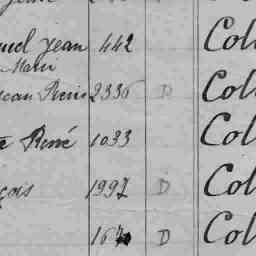 uel Jean 442 Col
Marie
Jean Pierre 2336 D Col
René 1033 Col
çois 1997 D Col
D Col